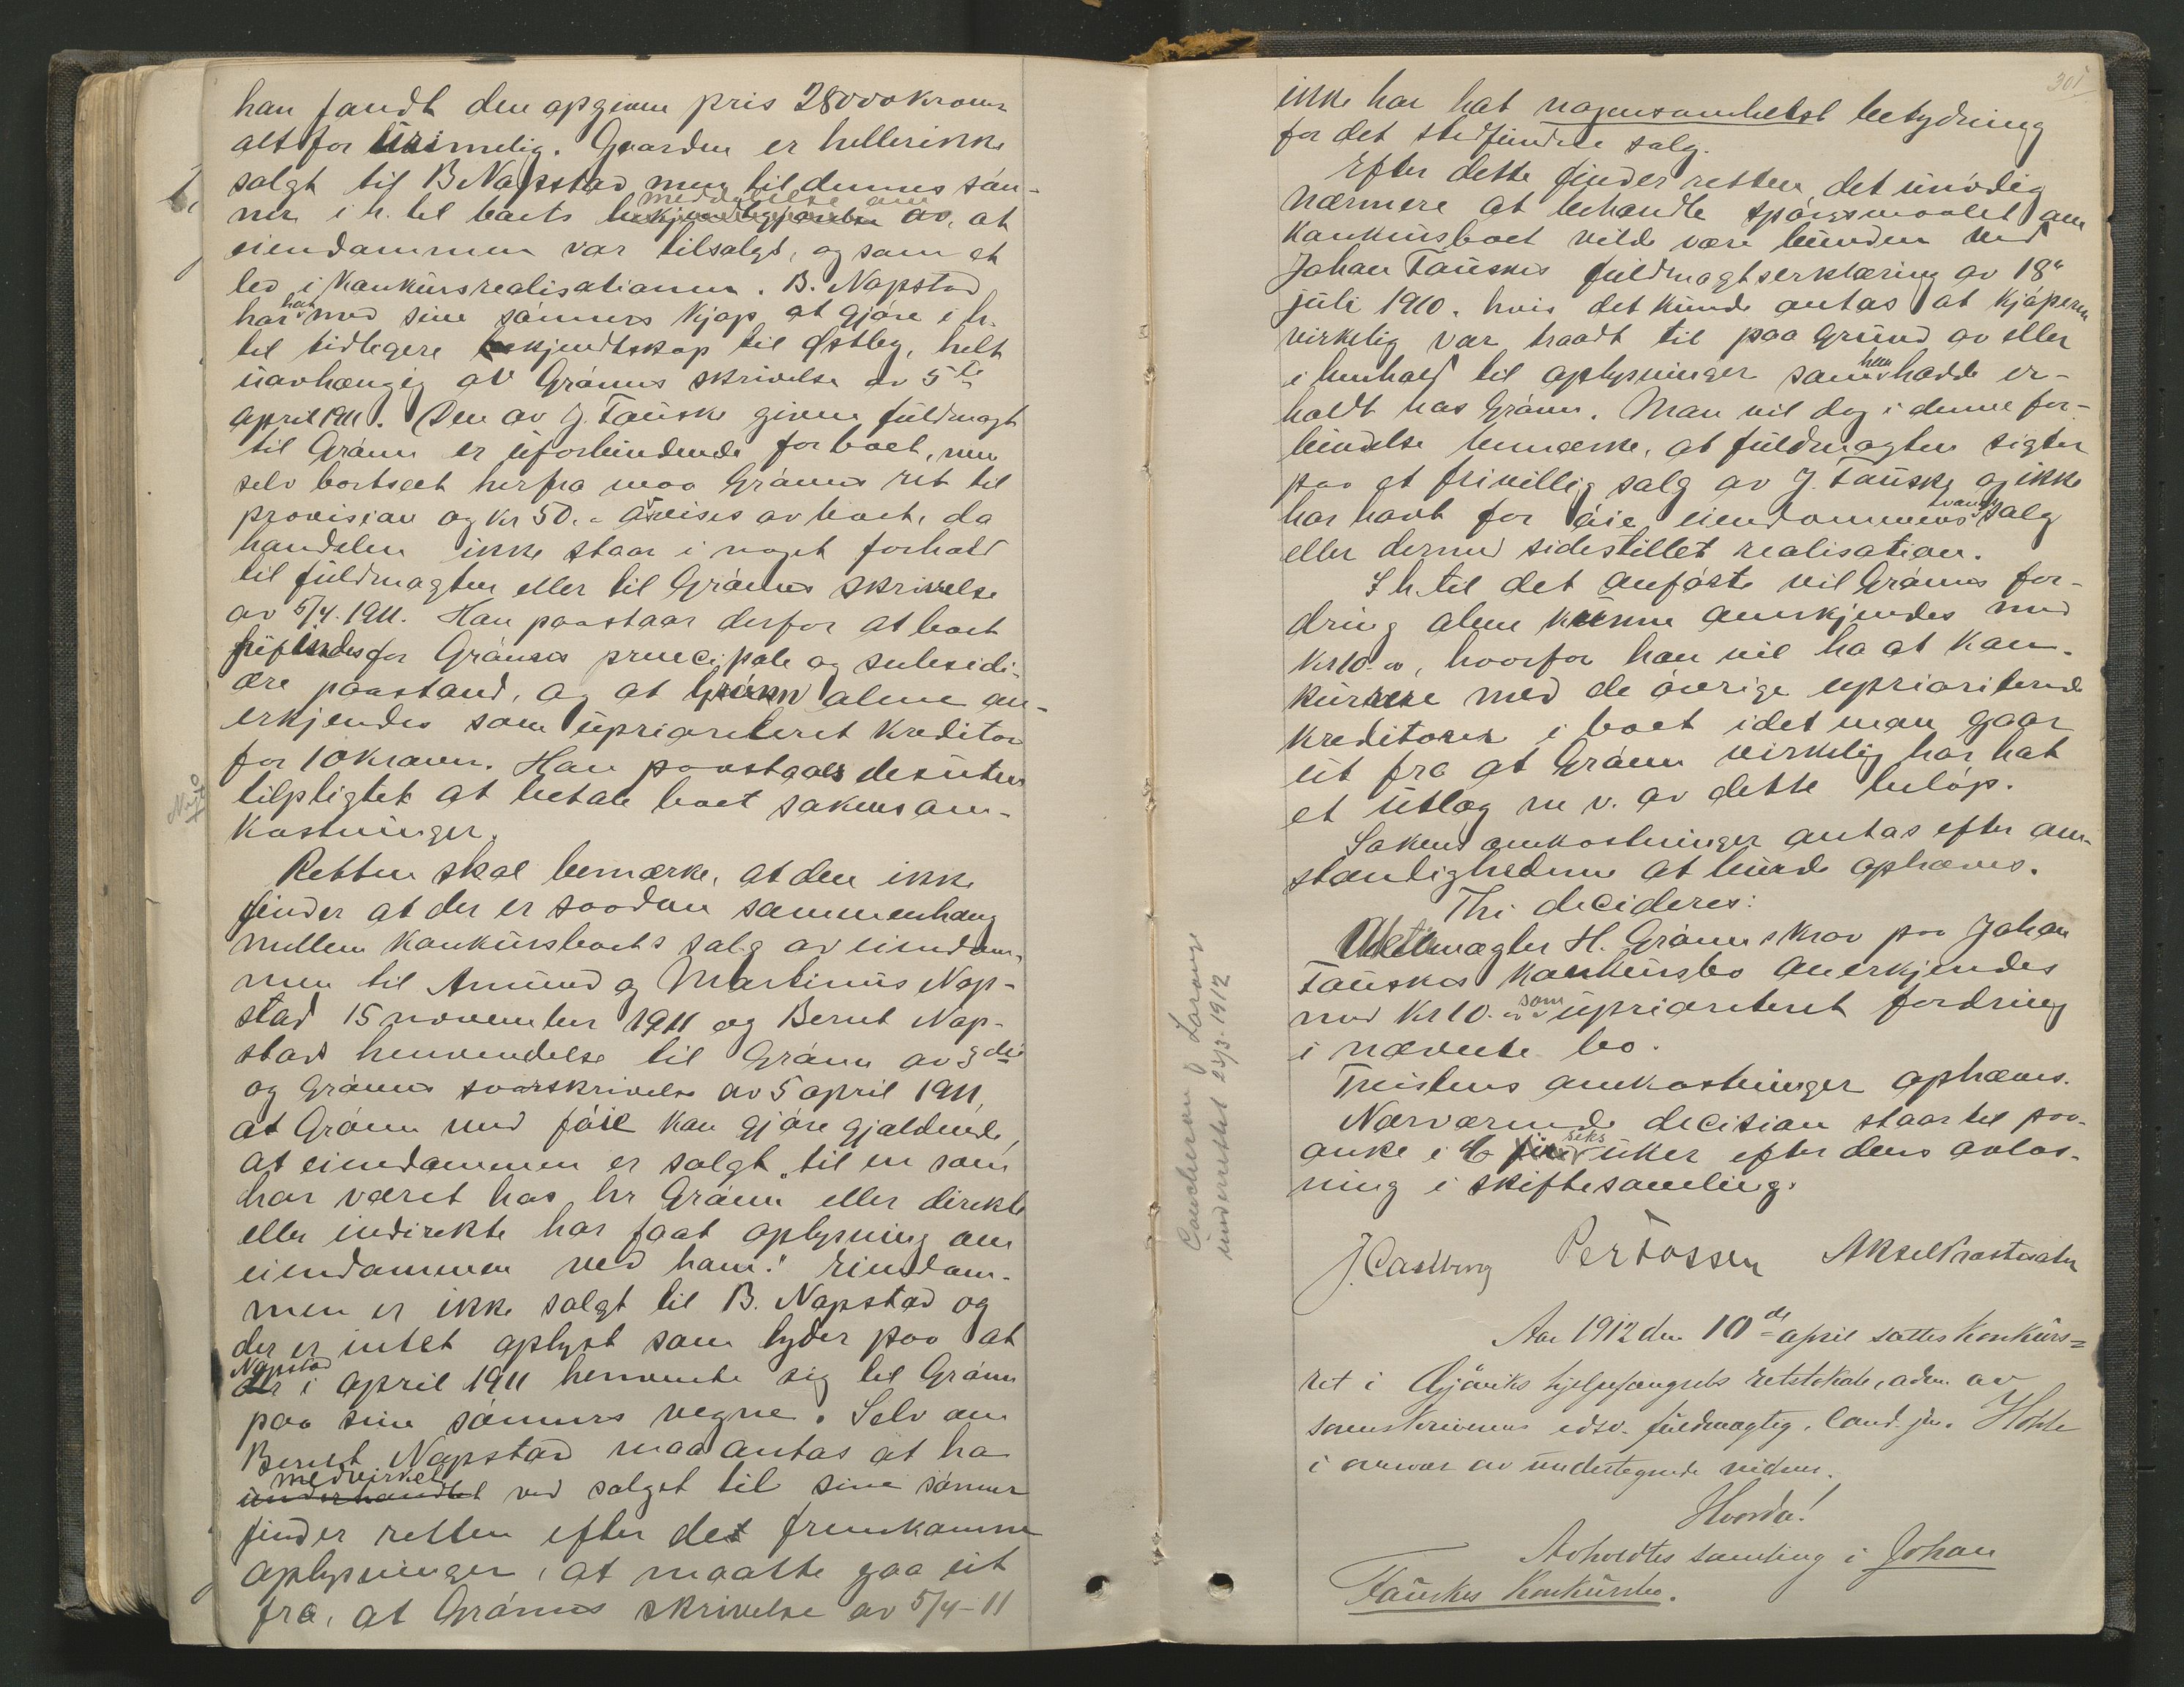 han fandt den opgivne pris 28000 kroner
altfor urimelig. Gaarden er heller ikke
salgt til B Napstad men til dennes søn-
ner i h. til boets meddelelse om av, at
eiendommen var tilsalgs, og som et
led i konkursrealisationen. B. Napstad
har hat med sine sønners kjøp at gjøre i h.
til tidligere bekjendtskap til Østby, helt
uavhængig av Grønns skrivelse av 5te
april 1911. Den av J. Fauske givne fuldmagt
til Grønn er uforbindende for boet, men
selv bortseet herfra maa Grønns ret til
provision og kr 50.- avvises av boet, da
handelen ikke staar i noget forhold
til fuldmagten eller til Grønns skrivelse
av 5/4. 1911. Han paastaar derfor at boet
frifindes for Grønns principale og subsidi-
ære paastand, og at Grønn alene an-
erkjendes som uprioritert kreditor
for 10 kroner. Han paastaaes desuten
tilpligtet at betale boet sakens om-
kostninger.
Retten skal bemærke, at den ikke
finder at der er saadan sammenhæng
mellem konkursboets salg av eiendom-
men til Amund og Martinius Nap-
stad 15 november 1911 og Bernt Nap-
stads henvendelse til Grønn av 3die
og Grønns svarskrivelse av 5 april 1911,
at Grønn med føie kan gjøre gjældende,
at eiendommen er solgt „til en som
har været hos hr Grønn eller direkte
eller indirekte har faat oplysning om
eiendommen ved ham." Eiendom-
men er ikke solgt til B. Napstad og
der er intet oplyst som tyder paa at
Napstad i april 1911 henvendte sig til Grønn
paa sine sønners vegne. Selv om
Bernt Napstad maa antas at ha
underhandlet medvirket ved salget til sine sønner
finder retten efter de fremkomne
oplysninger, at maatte gaa ut
fra, at Grønns skrivelse av 5/4-11
Concheron J. Lorange
underrettet 23/3. 1912
301
ikke har hat nogensomhelst betydning
for det stedfundne salg.
Efter dette finder retten det unødig
nærmere at behandle spørsmaalet om
konkursboet vilde være bunden ved
Johan Fauskes fuldmagtserklæring av 18"
juli 1910. hvis det kunde antas at kjøperen
virkelig var traadt til paa grund av eller
i henhold til oplysninger som han hadde er-
holdt hos Grønn. Man vil dog i denne for-
bindelse bemærke, at fuldmagten sigter
paa et frivillig salg av J. Fauske og ikke
har havt for øie eiendommens tvangssalg
eller dermed sidestillet realisation.
I h. til det anførte vil Grønns for-
dring alene kunne anerkjendes med
kr 10.00, hvorfor han vil ha at kon-
kurrere med de øvrige uprioriterede
kreditorer i boet idet man gaar
ut fra at Grønn virkelig har hat
et utlæg m v. av dette beløp.
Sakens omkostninger antas efter om-
stændighederne at burde ophæves.
Thi decideres:
H. Grønns krav paa Johan
Fauskes konkursbo anerkjendes
med kr 10.00 som uprioritert fordring
i nævnte bo.
Tvistens omkostninger ophæves.
Nærværende decision staar til paa-
anke i 6 seks uker efter dens avlæs-
ning i skiftesamling.
J. Castberg Per Fossen Aksel
Aar 1912 den 10de april sattes konkurs=
ret i Gjøviks hjelpefængsels retslokale, adm. av
sorenskriverens edsv. fuldmægtig, cand. jur. Holte
i overvær av undertegnede vidner.
Hvorda!
Avholdtes samling i Johan
Fauskes Konkursbo.